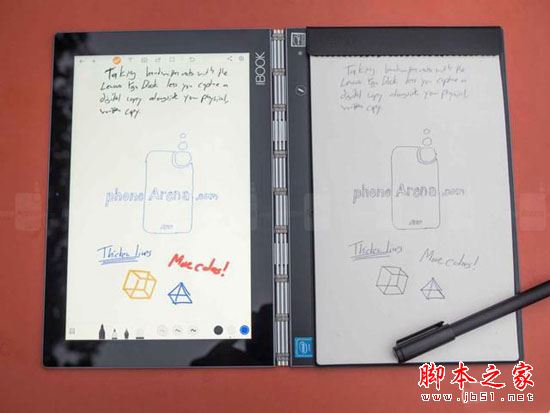 Taking handwritten notes with the
Lenovo Yoga Book lets you capture a
digital copy alongside your physical,
written copy.
phone Arena.com
Thicker Lines
More colors!
YOGA BOOK
Taking handwritten notes with the
Lenovo Yoga Book lets you capture a
digital copy alongside your physical,
written copy.
phone Arena.com
Thicker Lines
More colors!
脚本之家
www.jb51.net